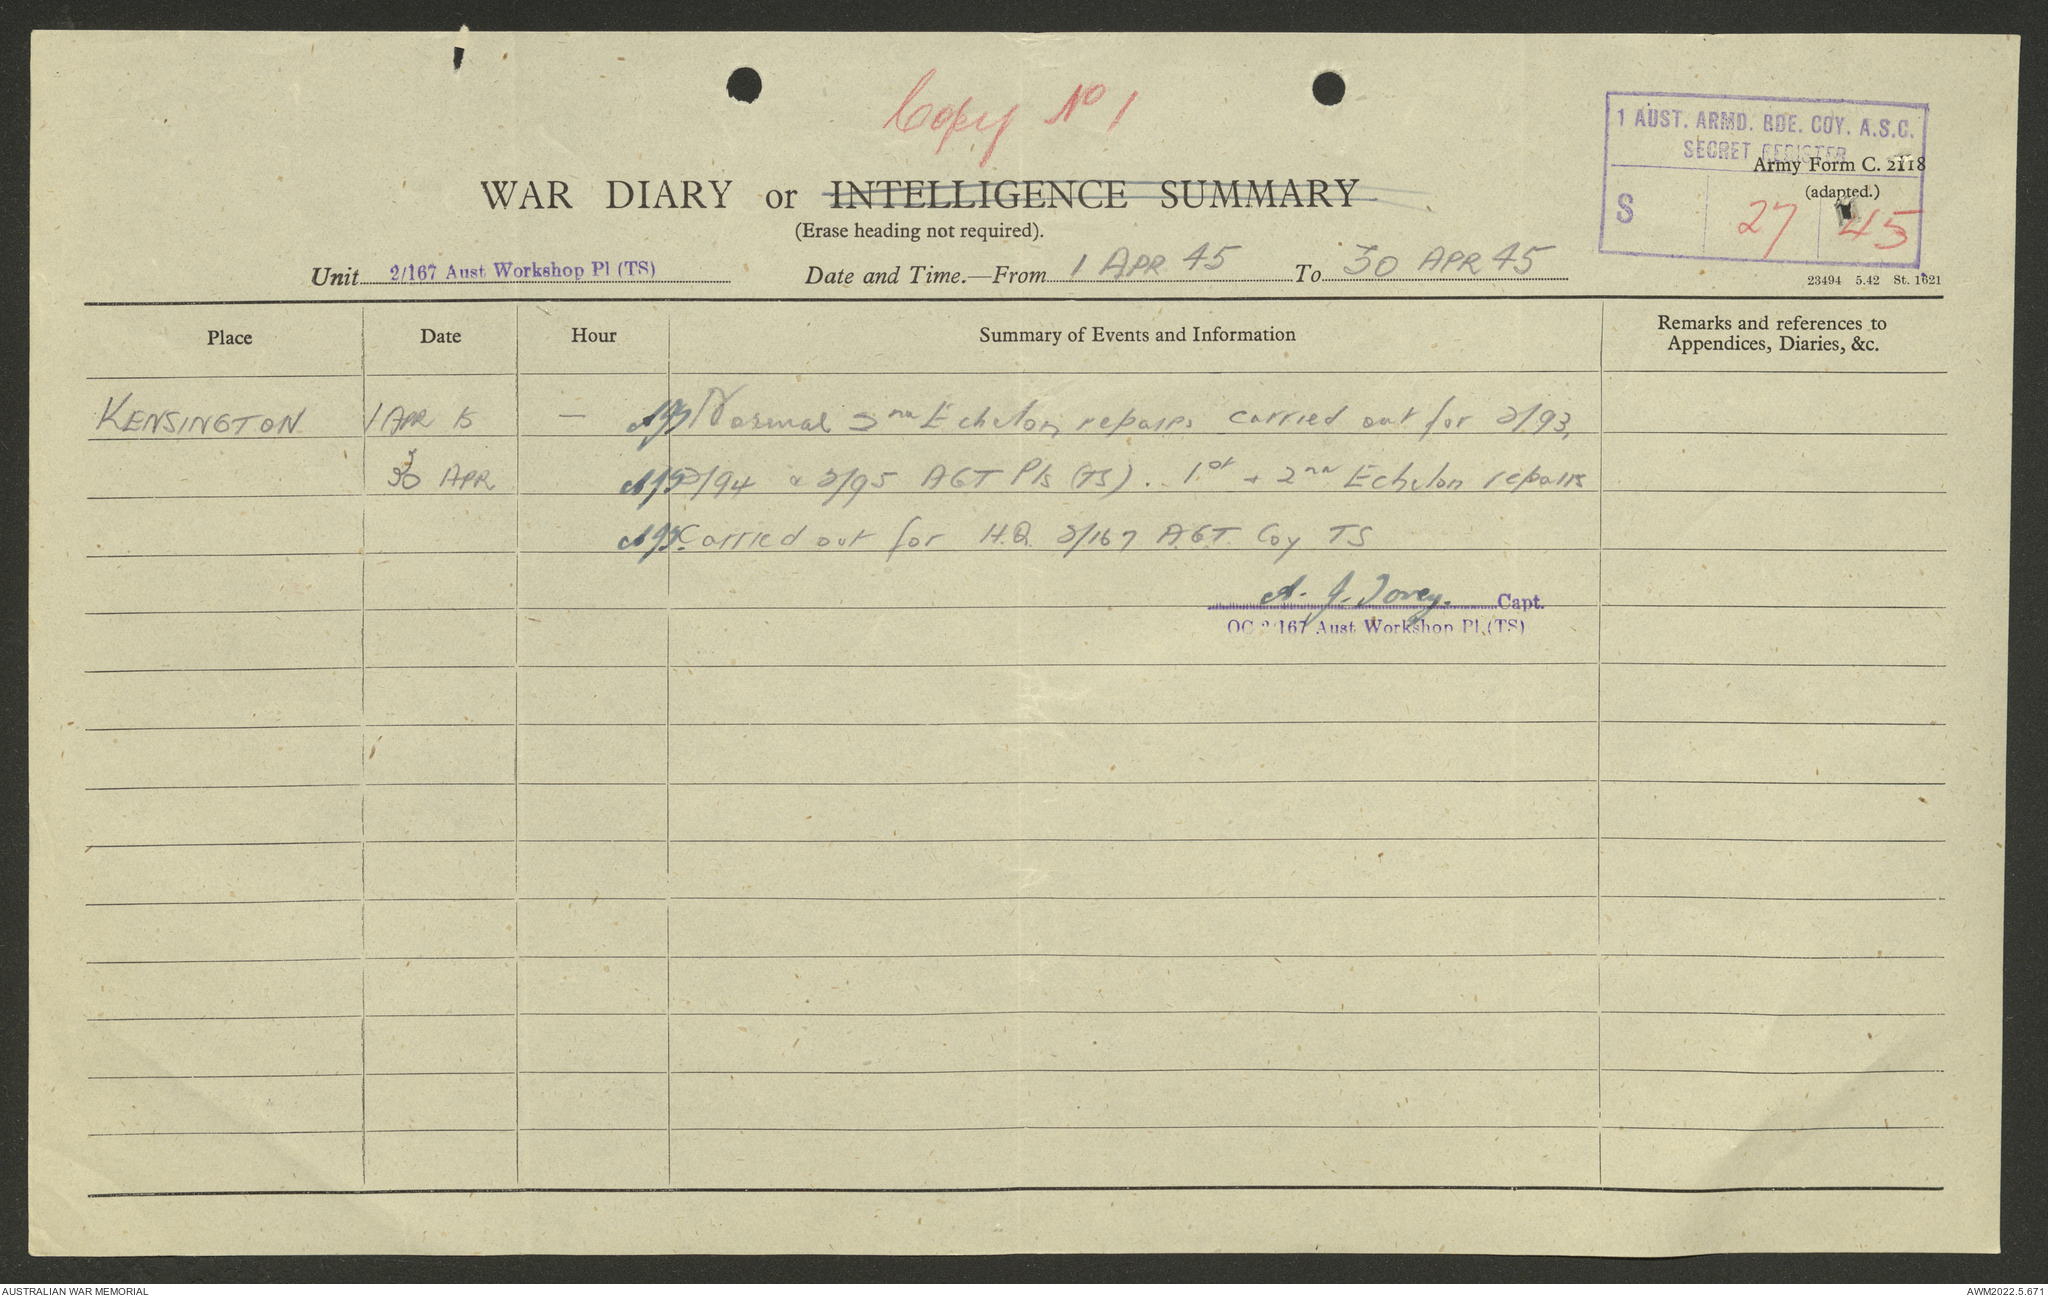 Copy No 1
1 AUST. ARMD. BDE. COY. A.S.C.
SECRET REGISTER
Army Form C. 2118
(adapted.)
S 27 45
WAR DIARY or INTELLIGENCE SUMMARY
(Erase heading not required).
Unit 2/167 Aust Workshop Pl (TS) Date and Time.—From 1 APR 45 To 30 APR 45
23494 5.42 St. 1621
Place Date Hour Summary of Events and Information Remarks and references to
Appendices, Diaries, &c.
KENSINGTON 1 APR — AJT Normal 2nd Echelon repairs carried out for 2/93,
30 APR AJT 2/94 & 2/95 AGT Pls (TS). 1st + 2nd Echelon repairs
AJT Carried out for H.Q. 2/167 A.G.T. Coy TS
A. J. Tovey. Capt.
OC 2/167 Aust Workshop Pl (TS)
AUSTRALIAN WAR MEMORIAL AWM2022.5.671